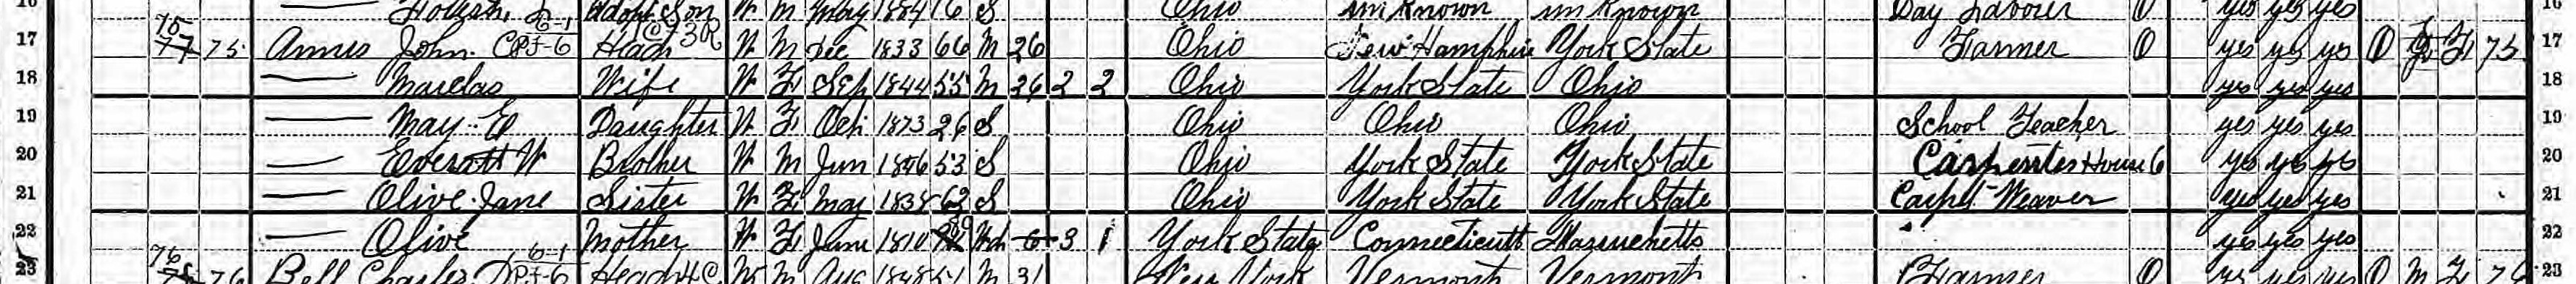 Adopt Son W M May 1884 16 S Ohio unknown unknown Day Labour 0 yes yes yes
17 75 77 75 Annis John. C Head W M Dec 1833 66 M 26 Ohio New Hampshire York State Farmer 0 yes yes yes O F 75 17
18 — Wife W F Sep 1844 55 M 26 2 2 Ohio York State Ohio yes yes yes 18
19 — May. E Daughter W F Oct 1873 26 S Ohio Ohio Ohio School Teacher yes yes yes 19
20 — Everatt W Brother W M Jun 1846 53 S Ohio York State York State Carpenter House 6 yes yes yes 20
21 — Olive Jane Sister W F May 1838 62 S Ohio York State York State Carpet Weaver yes yes yes 21
22 — Olive Mother W F June 1810 Wd 6 3 1 York State Connecticutt Massuchetts yes yes yes 22
23 76 76 Bell Charles Head W M Aug 1848 51 M 31 New York Vermont Vermont Farmer 0 yes yes yes O M F 76 23